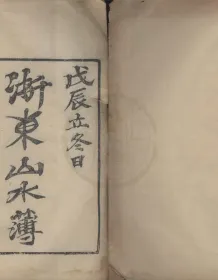 戊辰立冬日
浙東山水薄